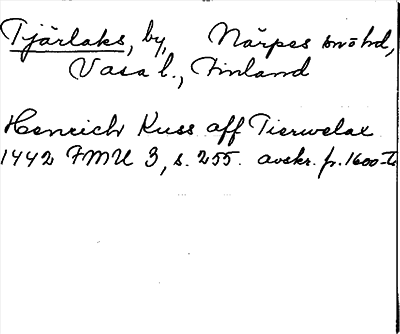 Tjärlaks, by, Närpes snöhd,
Vasa l., Finland
Henrich Kuss aff Tierwelax
1442 FMU 3, s. 255. avskr. fr. 1600-t.